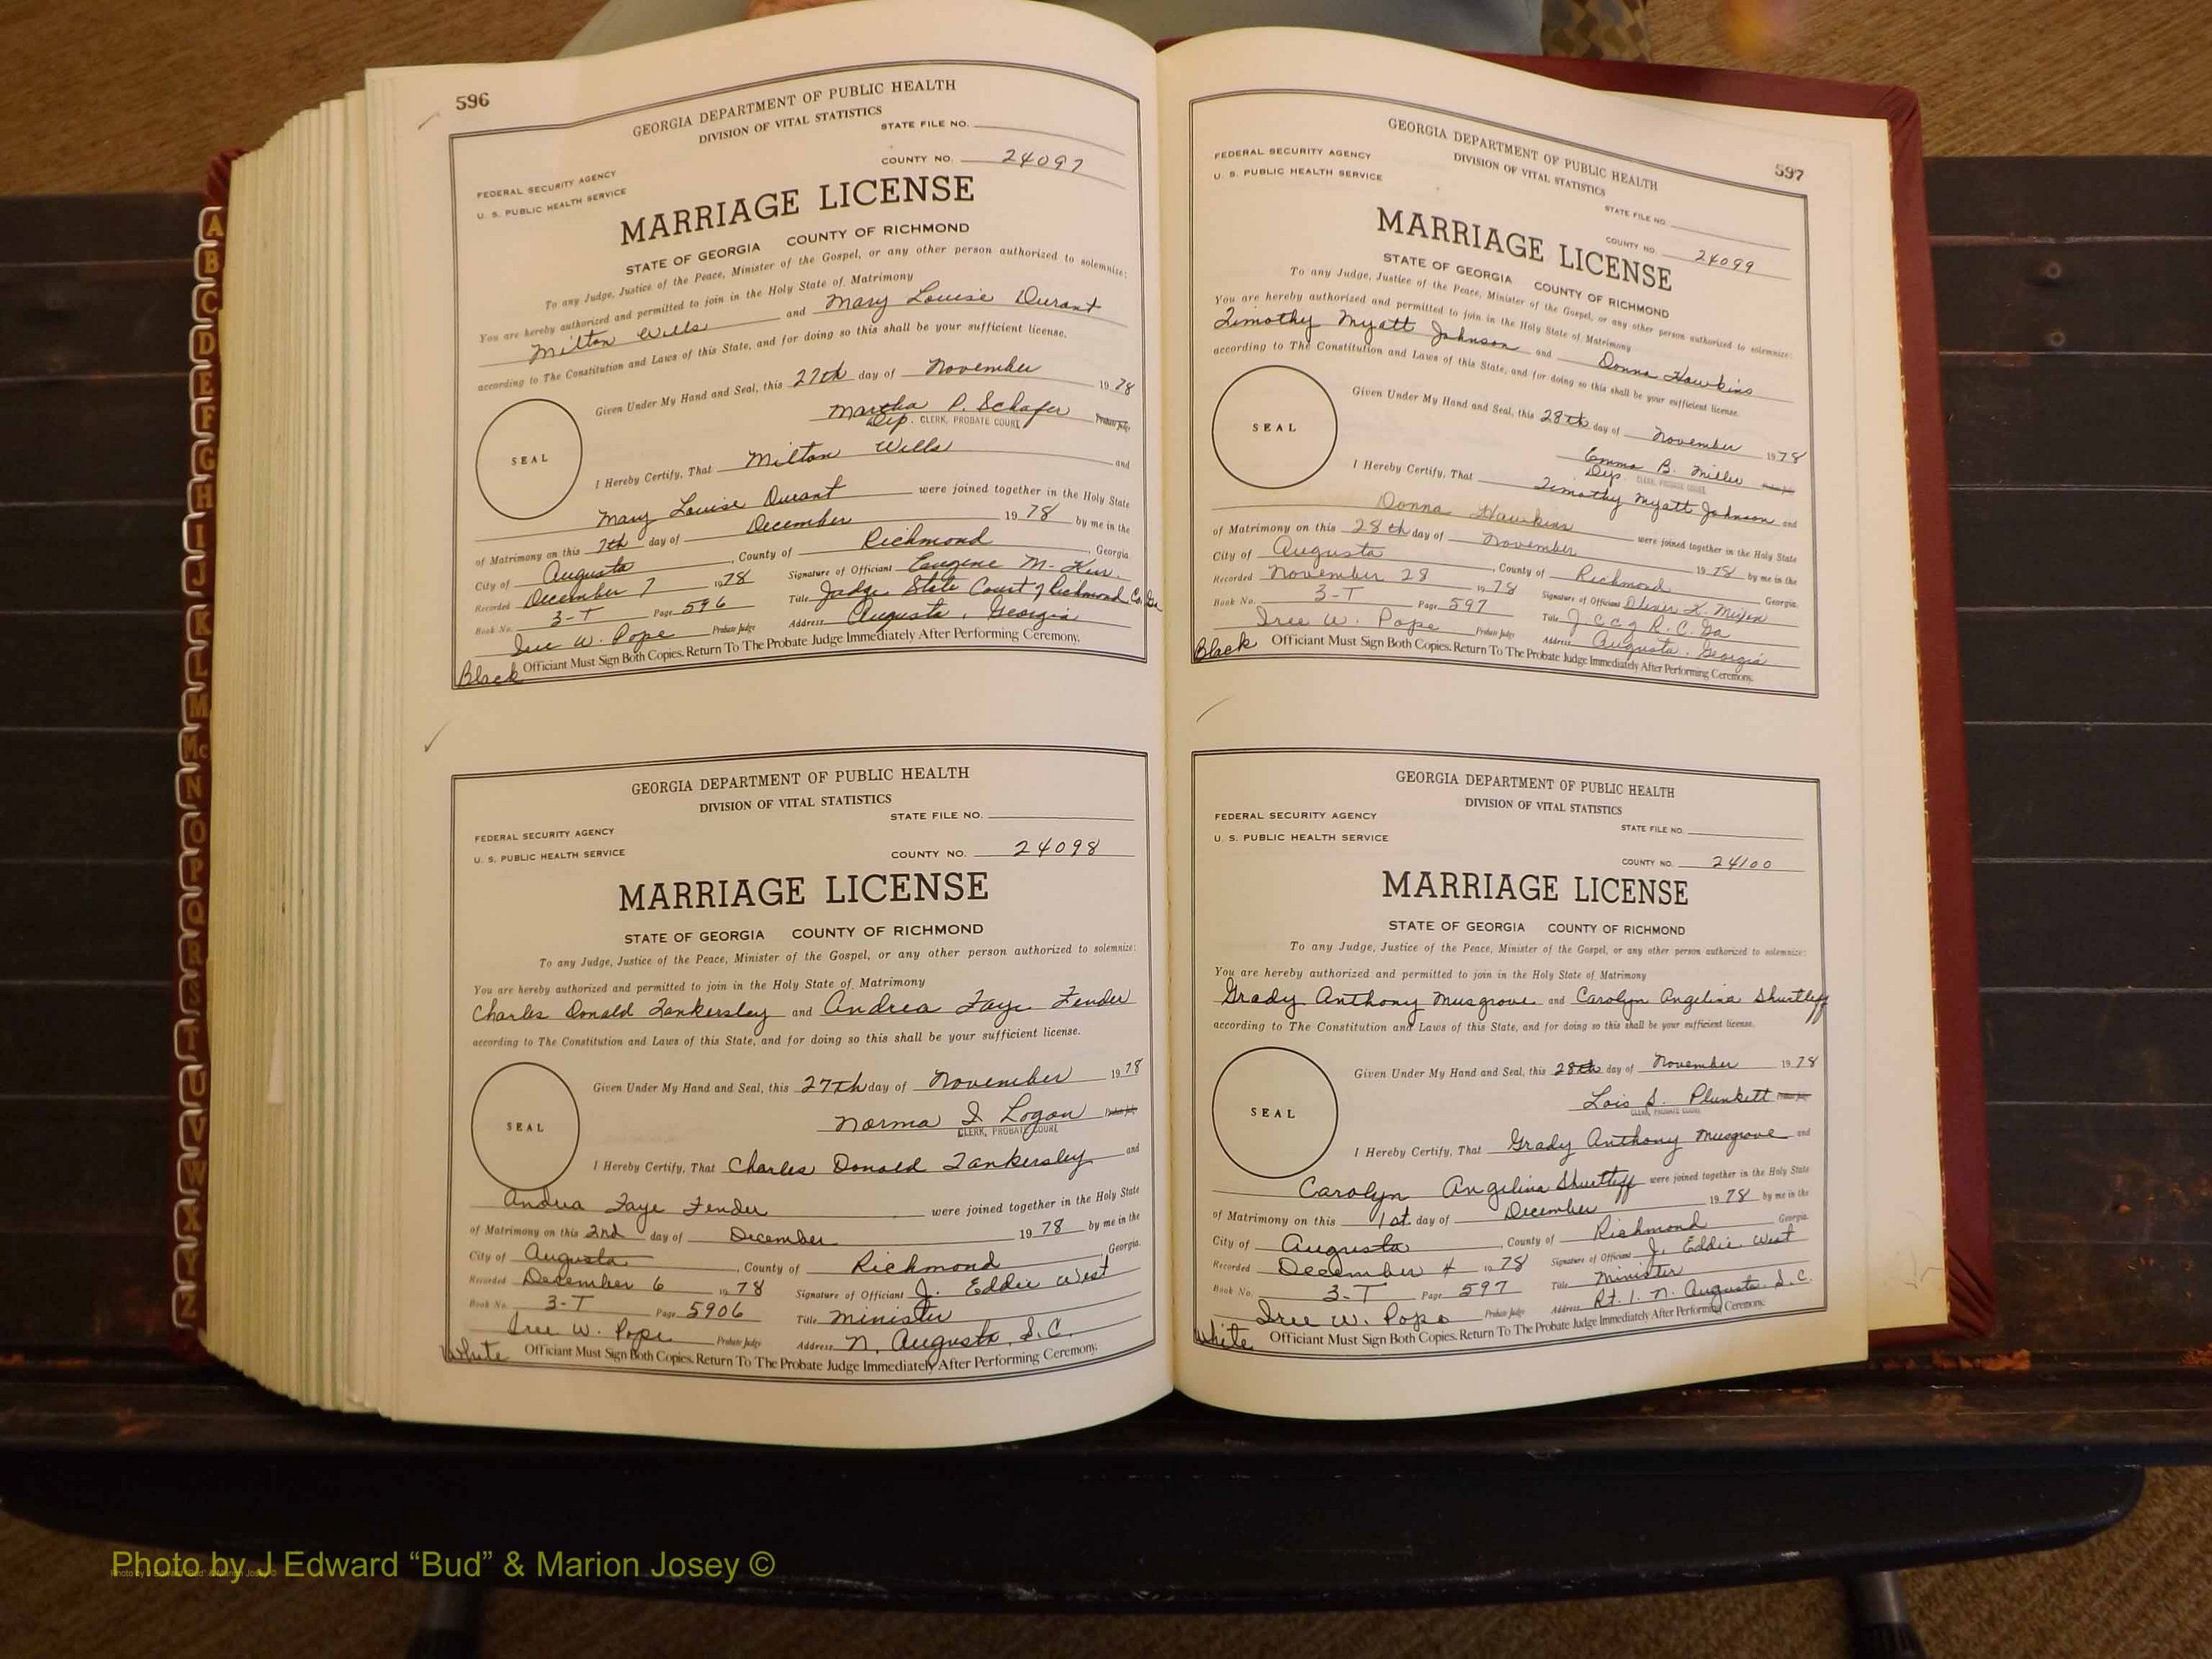 596
GEORGIA DEPARTMENT OF PUBLIC HEALTH
DIVISION OF VITAL STATISTICS
STATE FILE NO.
COUNTY NO. 24097
FEDERAL SECURITY AGENCY
U. S. PUBLIC HEALTH SERVICE
MARRIAGE LICENSE
STATE OF GEORGIA COUNTY OF RICHMOND
To any Judge, Justice of the Peace, Minister of the Gospel, or any other person authorized to solemnize:
You are hereby authorized and permitted to join in the Holy State of Matrimony
Milton Wills and Mary Louise Durant
according to The Constitution and Laws of this State, and for doing so this shall be your sufficient license.
Given Under My Hand and Seal, this 27th day of November 1978
Martha P. Schafer Probate Judge
Dep. CLERK, PROBATE COURT
SEAL
I Hereby Certify, That Milton Wills and
Mary Louise Durant were joined together in the Holy State
of Matrimony on this 7th day of December 1978 by me in the
City of Augusta, County of Richmond, Georgia.
Recorded December 7 1978 Signature of Officiant Eugene M. Kerr.
Book No. 3-T Page 596 Title Judge State Court of Richmond Co. Ga
Iree W. Pope Probate Judge Address Augusta, Georgia
Black Officiant Must Sign Both Copies. Return To The Probate Judge Immediately After Performing Ceremony.
GEORGIA DEPARTMENT OF PUBLIC HEALTH
DIVISION OF VITAL STATISTICS
STATE FILE NO.
FEDERAL SECURITY AGENCY
U. S. PUBLIC HEALTH SERVICE
COUNTY NO. 24098
MARRIAGE LICENSE
STATE OF GEORGIA COUNTY OF RICHMOND
To any Judge, Justice of the Peace, Minister of the Gospel, or any other person authorized to solemnize:
You are hereby authorized and permitted to join in the Holy State of Matrimony
Charles Donald Tankersley and Andrea Faye Fender
according to The Constitution and Laws of this State, and for doing so this shall be your sufficient license.
Given Under My Hand and Seal, this 27th day of November 1978
Norma I. Logan Probate Judge
CLERK, PROBATE COURT
SEAL
I Hereby Certify, That Charles Donald Tankersley and
Andrea Faye Fender were joined together in the Holy State
of Matrimony on this 2nd day of December 1978 by me in the
City of Augusta, County of Richmond, Georgia.
Recorded December 6 1978 Signature of Officiant J. Eddie West
Book No. 3-T Page 5906 Title Minister
Iree W. Pope Probate Judge Address N. Augusta, S.C.
White Officiant Must Sign Both Copies. Return To The Probate Judge Immediately After Performing Ceremony.
597
GEORGIA DEPARTMENT OF PUBLIC HEALTH
DIVISION OF VITAL STATISTICS
FEDERAL SECURITY AGENCY
U. S. PUBLIC HEALTH SERVICE
STATE FILE NO.
COUNTY NO. 24099
MARRIAGE LICENSE
STATE OF GEORGIA COUNTY OF RICHMOND
To any Judge, Justice of the Peace, Minister of the Gospel, or any other person authorized to solemnize:
You are hereby authorized and permitted to join in the Holy State of Matrimony
Timothy Myatt Johnson and Donna Hawkins
according to The Constitution and Laws of this State, and for doing so this shall be your sufficient license.
Given Under My Hand and Seal, this 28th day of November 1978
Emma B. Miller Probate Judge
Dep. CLERK, PROBATE COURT
SEAL
I Hereby Certify, That Timothy Myatt Johnson and
Donna Hawkins were joined together in the Holy State
of Matrimony on this 28th day of November 1978 by me in the
City of Augusta, County of Richmond Georgia.
Recorded November 28 1978 Signature of Officiant Oliver K. Mixon
Book No. 3-T Page 597 Title J C C of R. C. Ga
Iree W. Pope Probate Judge Address Augusta, Georgia
Black Officiant Must Sign Both Copies. Return To The Probate Judge Immediately After Performing Ceremony.
GEORGIA DEPARTMENT OF PUBLIC HEALTH
DIVISION OF VITAL STATISTICS
FEDERAL SECURITY AGENCY
U. S. PUBLIC HEALTH SERVICE
STATE FILE NO.
COUNTY NO. 24100
MARRIAGE LICENSE
STATE OF GEORGIA COUNTY OF RICHMOND
To any Judge, Justice of the Peace, Minister of the Gospel, or any other person authorized to solemnize:
You are hereby authorized and permitted to join in the Holy State of Matrimony
Grady Anthony Musgrove and Carolyn Angelina Shurtleff
according to The Constitution and Laws of this State, and for doing so this shall be your sufficient license.
Given Under My Hand and Seal, this 28th day of November 1978
Lois S. Plunkett Probate Judge
CLERK, PROBATE COURT
SEAL
I Hereby Certify, That Grady Anthony Musgrove and
Carolyn Angelina Shurtleff were joined together in the Holy State
of Matrimony on this 1st day of December 1978 by me in the
City of Augusta, County of Richmond Georgia.
Recorded December 4 1978 Signature of Officiant J. Eddie West
Book No. 3-T Page 597 Title Minister
Iree W. Pope Probate Judge Address Rt. 1. N. Augusta, S.C.
White Officiant Must Sign Both Copies. Return To The Probate Judge Immediately After Performing Ceremony.
A
B
C
D
E
F
G
H
I
J
K
L
M
Mc
N
O
P
Q
R
S
T
U
V
W
X
Y
Z
Photo by J Edward “Bud” & Marion Josey ©
Photo by J Edward “Bud” & Marion Josey ©